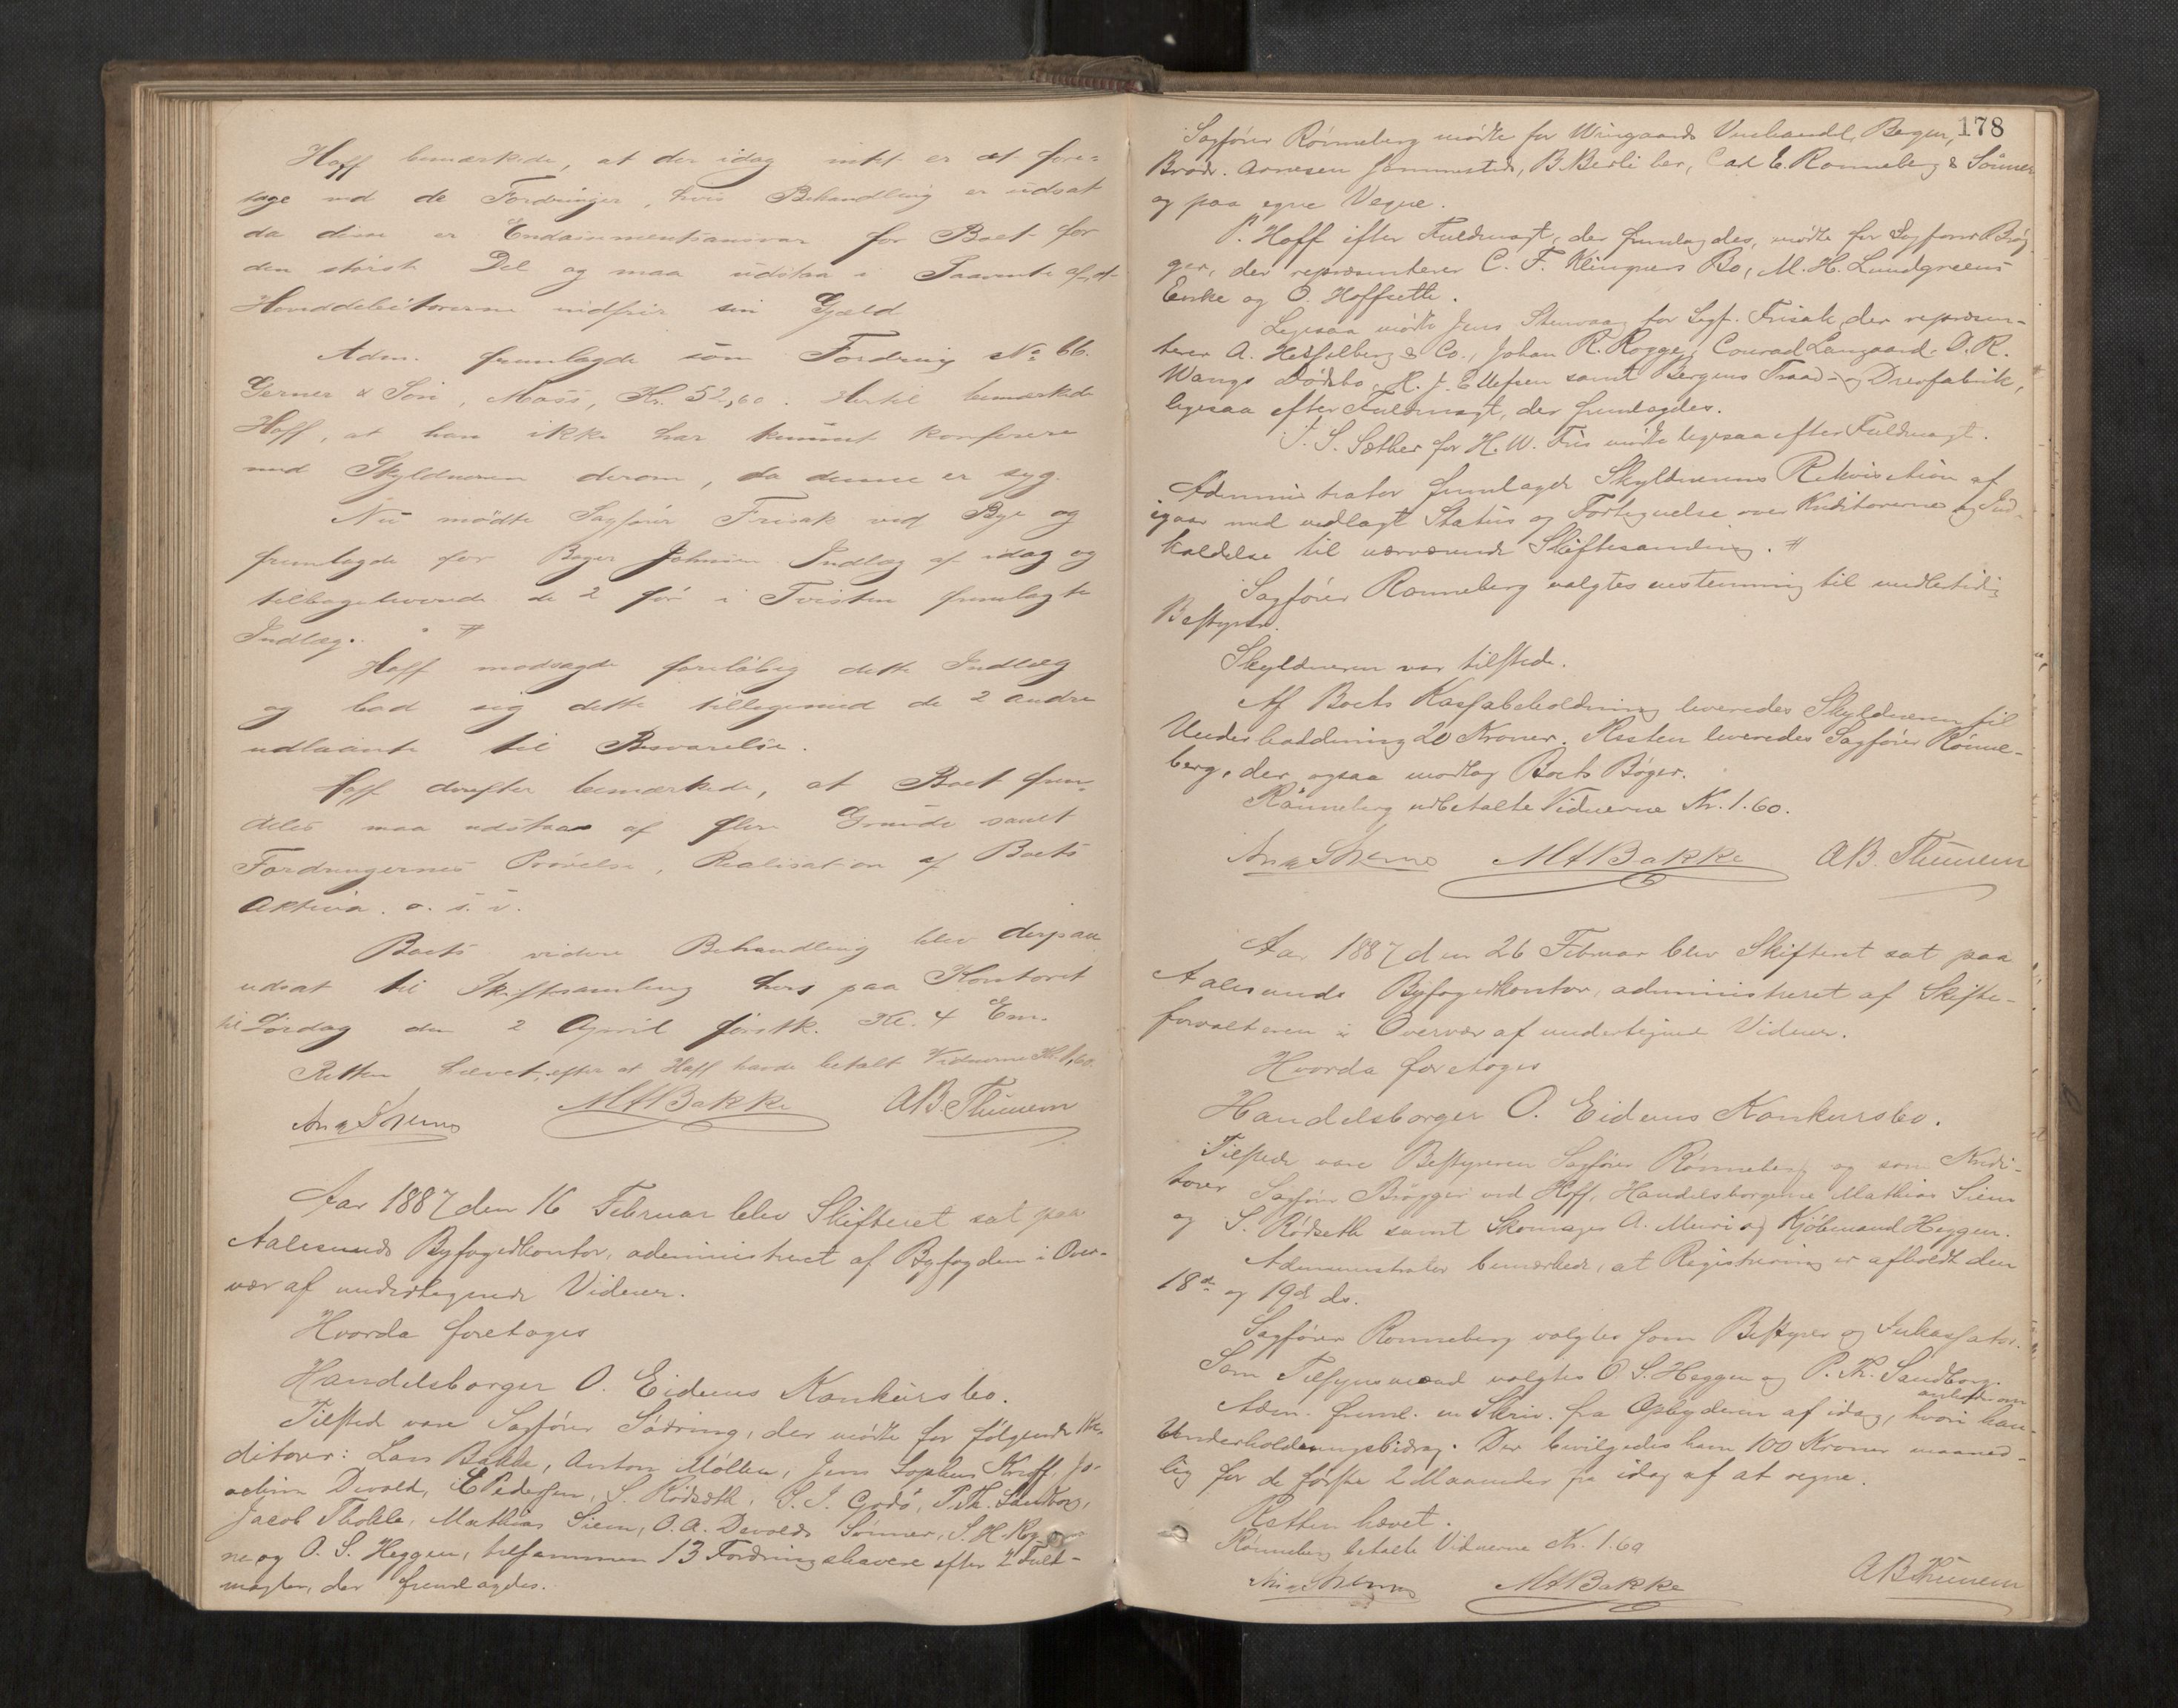 Hoff bemærkede, at der idag intet er at fore-
tage ved de Fordringer, hvis Behandling er udsat
da disse er Endossementsansvar for Boet for
den største Del og maa udstaa i Paavente af, at
Hoveddebitorerne indfrir sin Gjæld
Adm. fremlagde som Fordring No 66.
Gerner & Søn, Moss, Kr. 52,60. Hertil bemærkede
Hoff, at han ikke har kunnet konferere
med Skyldneren derom, da denne er syg.
Nu mødte Sagfører Frisak ved Bye og
fremlagde for Bager Johnsen Indlæg af idag og
tilbageleverede de 2 før i Tvisten fremlagte
Indlæg. #
Hoff modsagde foreløbig dette Indlæg
og bad sig dette tilligemed de 2 andre
udlaante til Besvarelse.
Hoff derefter bemærkede, at Boet frem-
deles maa udstaa af flere Grunde samt
Fordringernes Prøvelse, Realisation af Boets
Aktiva. o. s. v.
Boets videre Behandling blev derpaa
udsat til Skiftesamling her paa Kontoret
til Lørdag den 2 April førstk. Kl. 4 Em.
Retten hævet, efter at Hoff havde betalt Vidnerne Kr. 1,60.
MABakke AB. Thinnem
Aar 1887 den 16 Februar blev Skifteret sat paa
Aalesunds Byfogedkontor, administreret af Byfogden i Over-
vær af undertegnede Vidner.
Hvorda foretoges
Handelsborger O. Eidems Konkursbo.
Tilstede vare Sagfører Sødring, der mødte for følgende Kre-
ditorer: Lars Bakke, Anton Møller, Jens Sophus Knoff, Jo-
achim Devold, E Pedersen, S. Rødseth, S. J. Godø, P. Th. Sandborg,
Jacob Tholle, Mathias Siem, O. A. Devolds Sønner, S. H.
ne og O. S. Heggen, tilsammen 13 Fordringshavere efter 2 Fuld-
magter, der fremlagdes.
178
Sagfører Rønneberg mødte for Wingaards Vinhandel, Bergen,
Brødr. Arnesen B. Berli her, Carl E. Rønneberg & Sønner
og paa egne Vegne.
P. Hoff efter Fuldmagt, der fremlagdes, mødte for Sagfører Brøg-
ger, der repræsenterer C. F. Klingners Bo, M. H. Lundgreens
Enke og O. Hoffseth.
Ligesaa mødte Jens Stenvaag for Sagf. Frisak, der repræsen-
terer A. Hesselberg & Co., Johan R. Rogge, Conrad Langaard. O. R.
Wangs Dødsbo, H. J. Ellefsen samt Bergens Traad- og Drevfabrik,
ligesaa efter Fuldmagt, der fremlagdes.
S. Sæther for H. W. Friis mødte ligesaa efter Fuldmagt.
Administrator fremlagde Skyldnerens Rekvisition af
igaar med vedlagt Status og Fortegnelse over Kreditorerne og Ind-
kaldelse til nærværende Skiftesamling. #
Sagfører Rønneberg valgtes enstemmig til midlertidig
Bestyrer.
Skyldneren var tilstede.
Af Boets Kassabeholdning leveredes Skyldneren til
Underholdning 20 Kroner. Resten leveredes Sagfører Rønne-
berg, der ogsaa modtog Boets Bøger.
Rønneberg udbetalte Vidnerne Kr. 1.60.
MABakke AB. Thinnem
Aar 1887 den 26 Februar blev Skifteret sat paa
Aalesunds Byfogedkontor, administreret af Skifte-
forvalteren i Overvær af undertegnede Vidner.
Hvorda foretoges
Handelsborger O. Eidems Konkursbo.
Tilstede vare Bestyreren Sagfører Rønneberg og som Kredi-
torer Sagfører Brøgger ved Hoff, Handelsborgerne Mathias Siem
og S. Rødseth samt Skomager A. Muri og Kjøbmand Heggen.
Administrator bemærkede, at Registrering er afholdt den
18de og 19de ds.
Sagfører Rønneberg valgtes som Bestyrer og Inkassator.
Som Tilsynsmænd valgtes O. S. Heggen og P. Th. Sandborg.
Adm. freml. en Skriv. fra Opbyderen af idag, hvori han anholder om
Underholdningsbidrag. Der bevilgedes ham 100 Kroner maaned-
lig for de første 2 Maaneder fra idag af at regne.
Retten hævet.
Rønneberg betalte Vidnerne Kr. 1.60
MABakke AB Thinnem